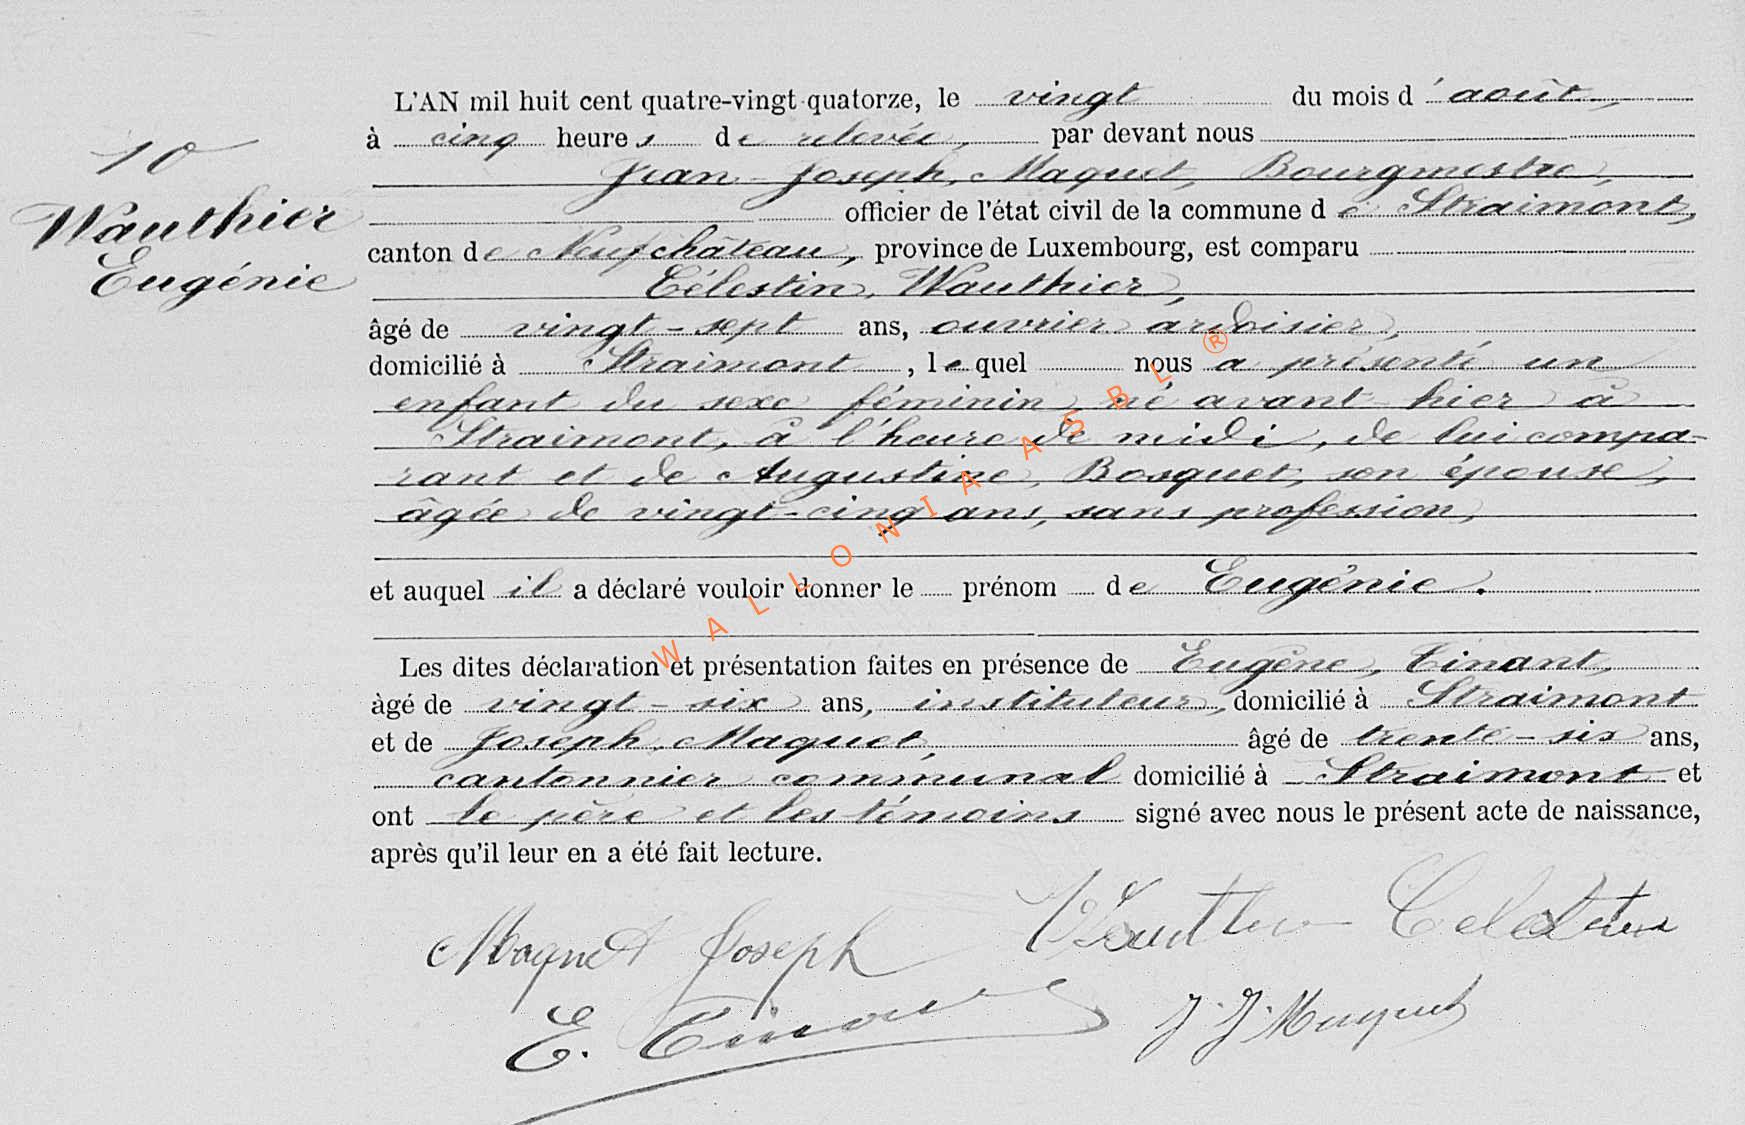 L'AN mil huit cent quatre-vingt-quatorze, le vingt du mois d'août,
à cinq heures de relevée, par devant nous
10
Jean-Joseph, Maquet, Bourgmestre,
Wauthier
officier de l'état civil de la commune de Straimont,
canton de Neufchâteau, province de Luxembourg, est comparu
Eugénie
Célestin, Wauthier,
âgé de vingt-sept ans, ouvrier ardoisier,
domicilié à Straimont, lequel nous a présenté un
enfant du sexe féminin, né avant-hier à
Straimont, à l'heure de midi, de lui compa-
rant et de Augustine, Bosquet, son épouse,
âgée de vingt-cinq ans, sans profession,
et auquel il a déclaré vouloir donner le prénom de Eugénie.
Les dites déclaration et présentation faites en présence de Eugène, Tinant,
âgé de vingt-six ans, instituteur, domicilié à Straimont
et de Joseph, Maquet, âgé de trente-six ans,
cantonnier communal domicilié à Straimont et
ont le père et les témoins signé avec nous le présent acte de naissance,
après qu'il leur en a été fait lecture.
Wauthier Célestin
Maquet Joseph
E. Tinant
J. J. Maquet
WALLONIA ASBL ®